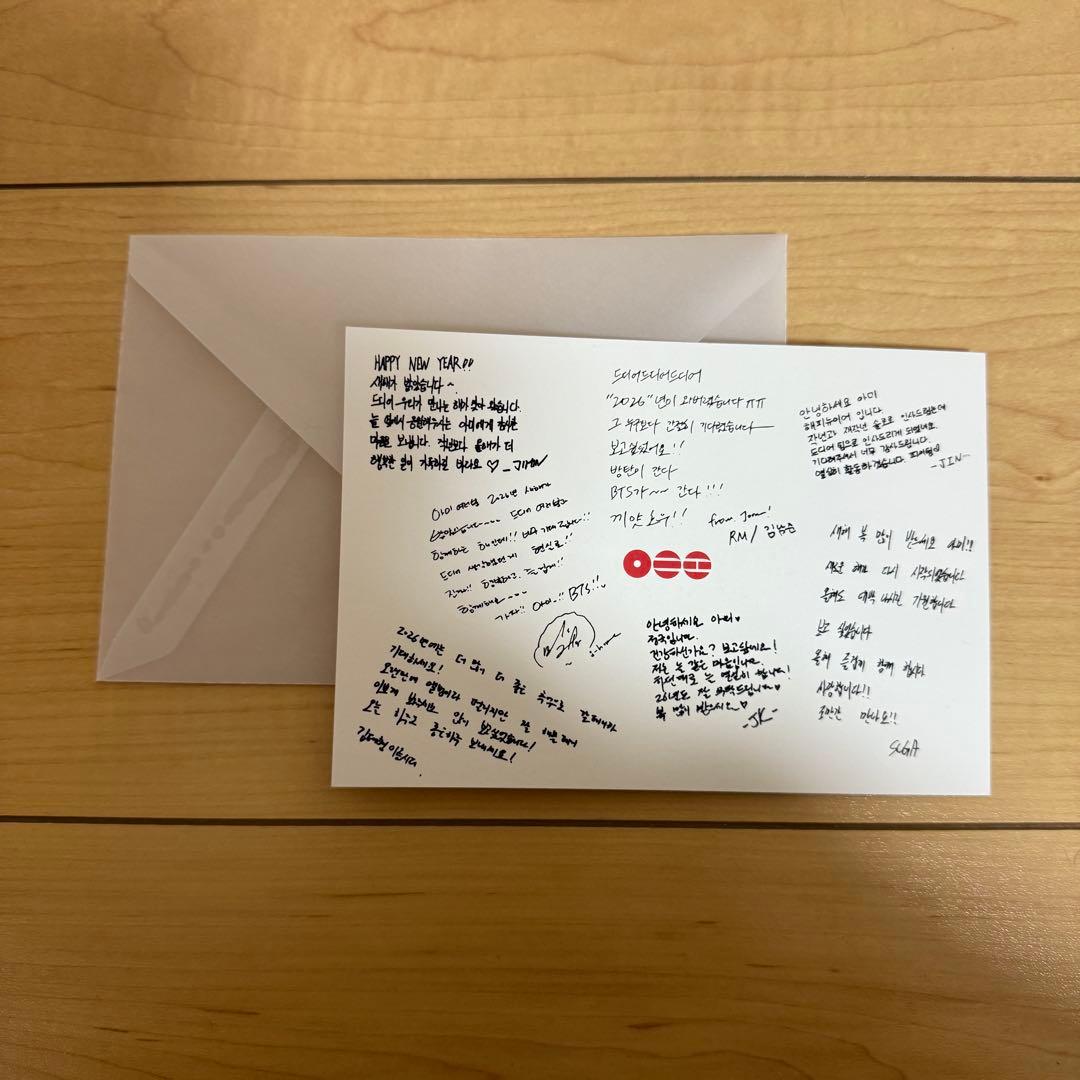 HAPPY NEW YEAR!!
새해가 밝았습니다~
드디어 우리가 만나는 해가 찾아 왔습니다.
늘 옆에서 응원해주시는 아미에게 감사한
마음을 보냅니다. 작년보다 올해가 더
행복한 일이 가득하길 바라요 ♡ _JIMIN
드디어드디어드디어
"2026"년이 와버렸습니다 ㅠㅠ
그 누구보다 간절히 기다렸습니다
보고싶었어요!!
방탄이 간다
BTS가~~ 간다!!!
끼얏호우!!
from. Joon!
RM / 김남준
안녕하세요 아미
해피뉴이어 입니다.
작년과 재작년 솔로로 인사드렸는데
드디어 팀으로 인사드리게 되었네요.
기다려주셔서 너무 감사드립니다.
열심히 활동하겠습니다.
-JIN-
아미 여러분 2026년 새해가
밝았습니다~~~ 드디어 여러분과
함께하는 해인데!!
드디어 생각했던게 현실로!!
진짜!! 행복하고, 즐겁게!!
함께해요~~~
가자!! 아미!! BTS!!
새해 복 많이 받으세요 아미!!
새로운 해로 다시 시작되었습니다
올해도 대박 나시길 기원합니다
보고 싶었습니다
올해 즐겁게 함께 합시다
사랑합니다!!
조만간 만나요!!
SUGA
안녕하세요 아미♥
정국입니다.
건강하신가요? 보고싶네요!
저는 늘 같은 마음입니다.
하던대로 늘 열심히 합니다!
26년도 잘 부탁드립니다♥
복 많이 받으세요♡
-JK-
2026년에는 더 많고, 더 좋은 추억으로
기대하세요!
오랜만에
보고싶었습니다!
오늘 하루고 좋은하루 보내세요!
김태형 이었습니다.